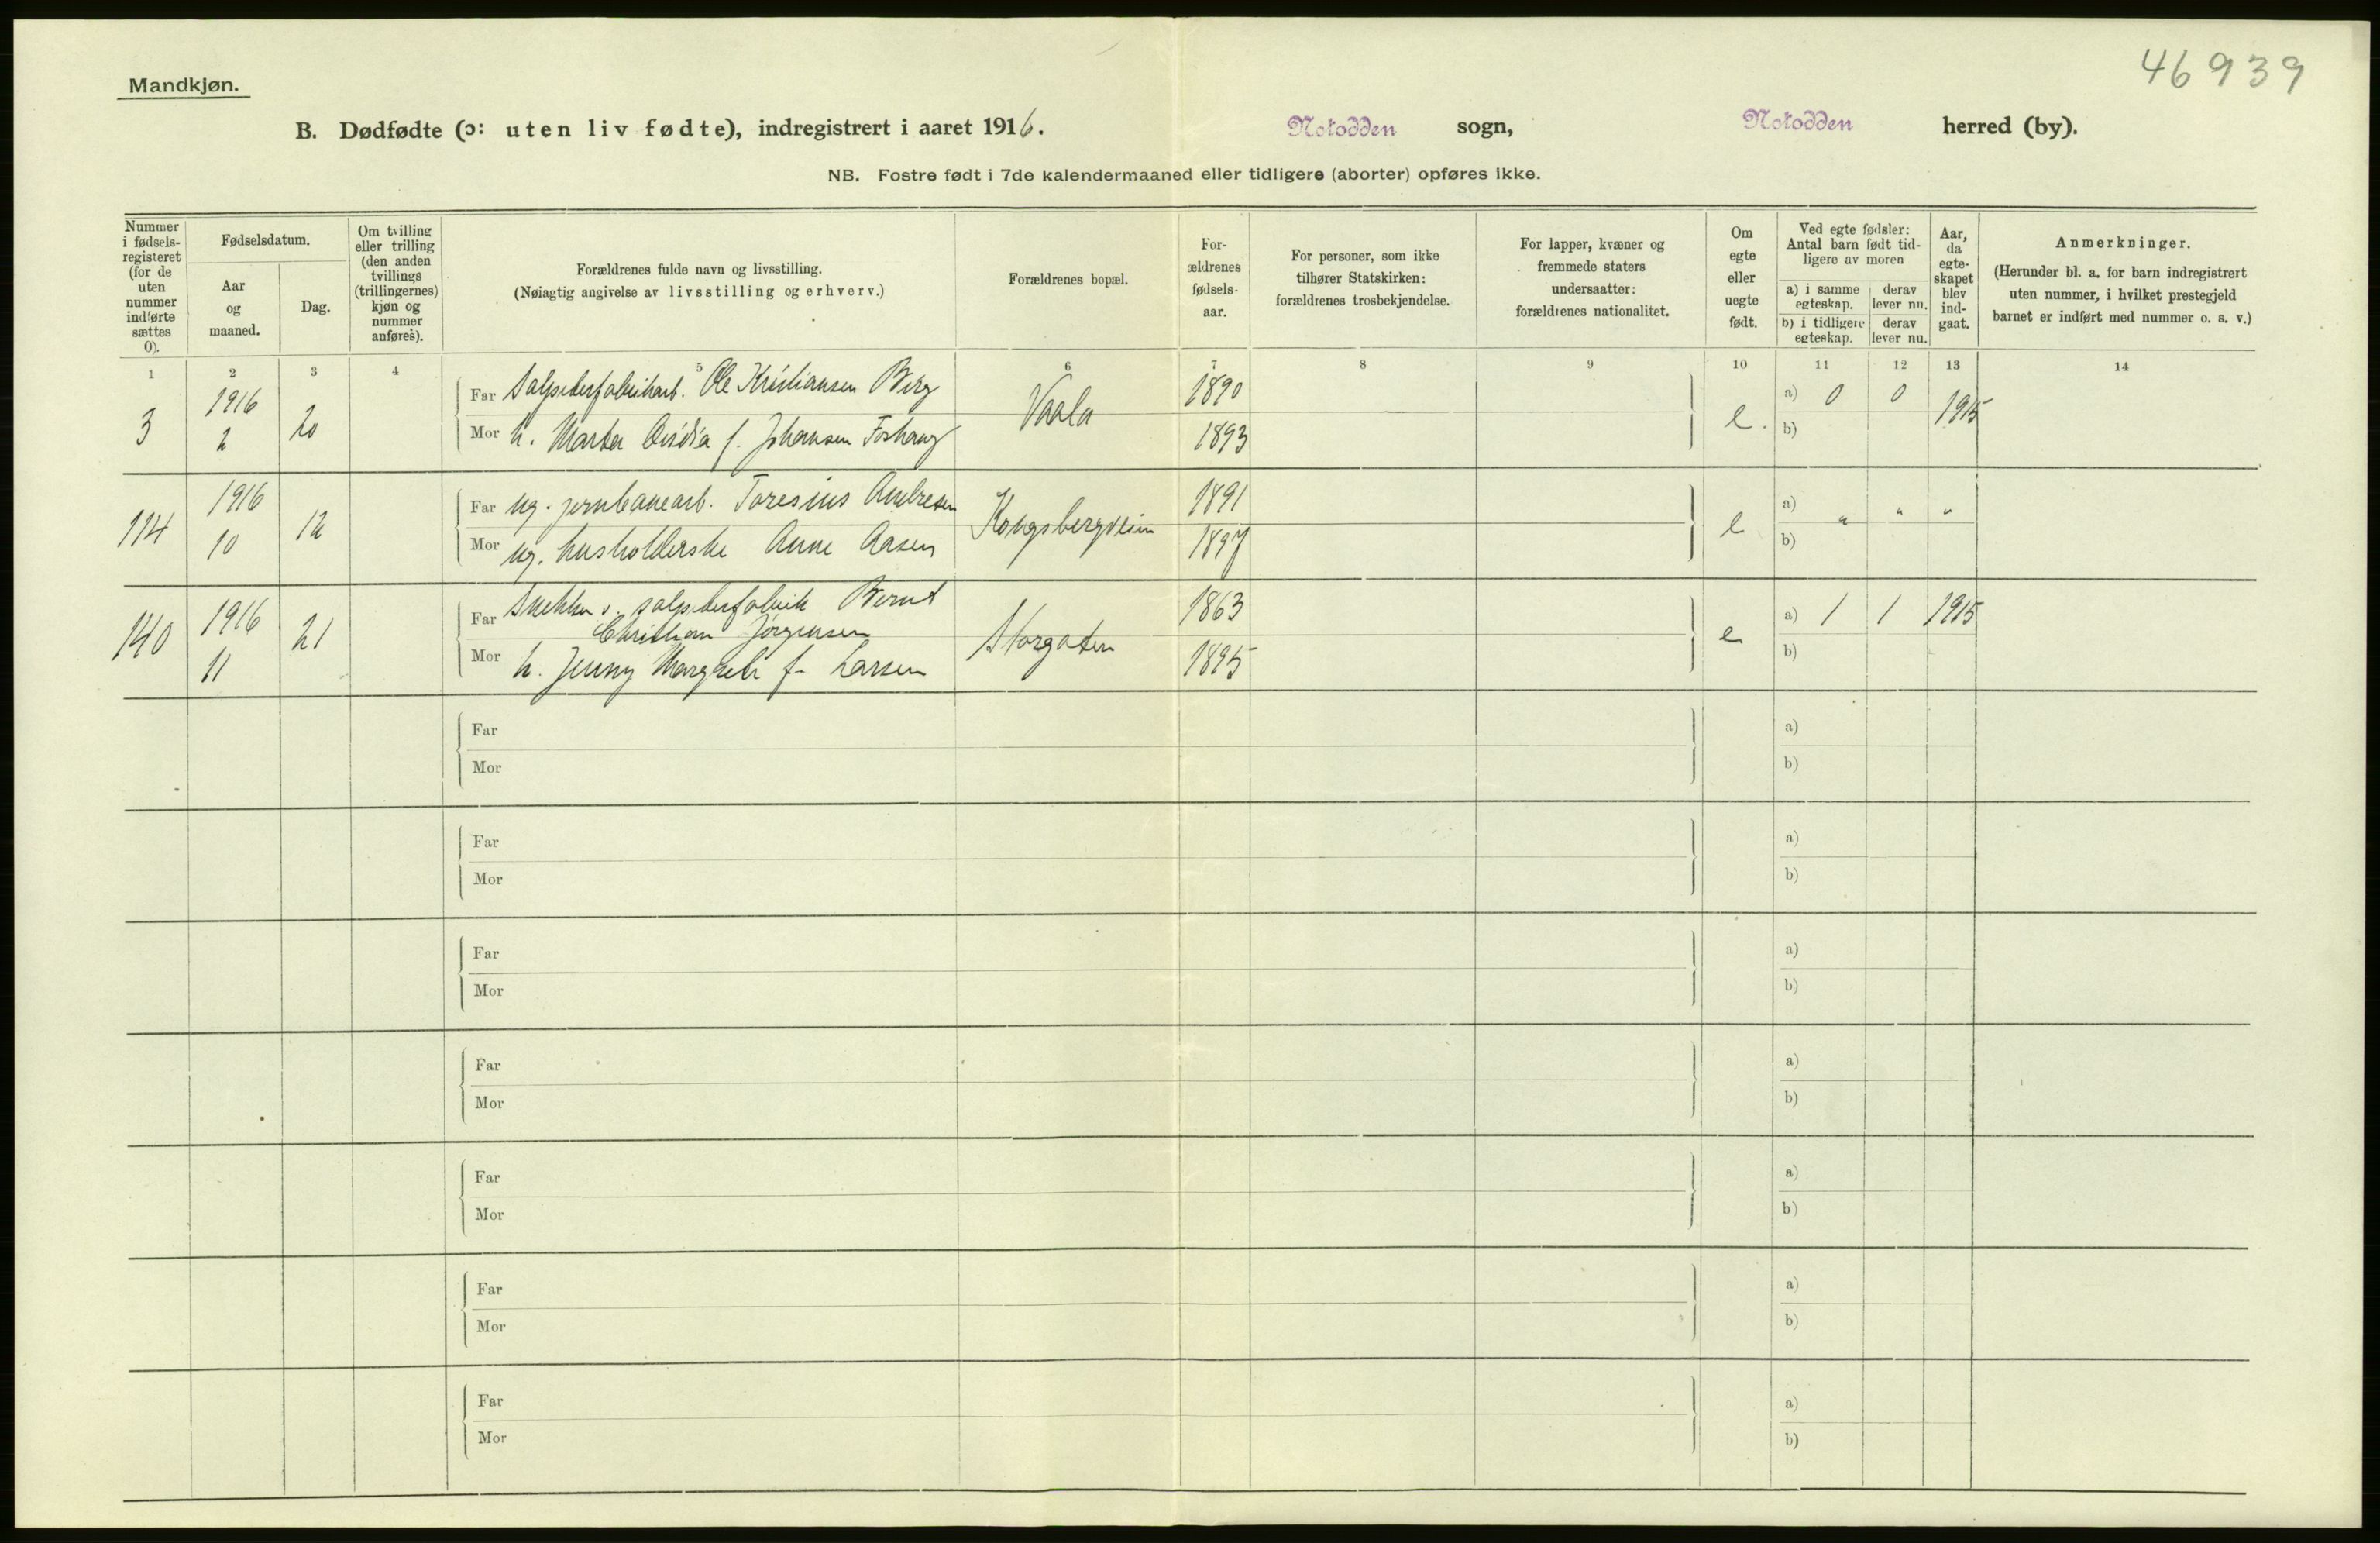 46939
Mandkjøn.
B. Dødfødte (ɔ: uten liv fødte), indregistrert i aaret 1916. Notodden sogn, Notodden herred (by).
NB. Fostre født i 7de kalendermaaned eller tidligere (aborter) opføres ikke.
Nummer
i fødsels-
registeret
(for de
uten
nummer
indførte
sættes
0).
Fødselsdatum.
Aar
og
maaned.
Dag.
Om tvilling
eller trilling
(den anden
tvillings
(trillingernes)
kjøn og
nummer
anføres).
Forældrenes fulde navn og livsstilling.
(Nøiagtig angivelse av livsstilling og erhverv.)
Forældrenes bopæl.
For-
ældrenes
fødsels-
aar.
For personer, som ikke
tilhører Statskirken:
forældrenes trosbekjendelse.
For lapper, kvæner og
fremmede staters
undersaatter:
forældrenes nationalitet.
Om
egte
eller
uegte
født.
Ved egte fødsler:
Antal barn født tid-
ligere av moren
a) i samme
egteskap.
derav
lever nu.
b) i tidligere
egteskap.
derav
lever nu.
Aar,
da
egte-
skapet
blev
ind-
gaat.
Anmerkninger.
(Herunder bl. a. for barn indregistrert
uten nummer, i hvilket prestegjeld
barnet er indført med nummer o. s. v.)
1 2 3 4 5 6 7 8 9 10 11 12 13 14
3 1916 2 20
Far Salpeterfabrikarb. Ole Kristiansen Berg
Mor h. Marta f. Johansen
Vaala 1890 1893 e. a) 0 0 1915
b)
114 1916 10 12
Far ug. jernbanearb. Toresius Andresen
Mor ug. husholderske Anne Aasen
Kongsbergveien 1891 1897 e a) " " "
b)
140 1916 11 21
Far Snekker v. salpeterfabrik Bernt
Christian Jørgensen
Mor h. Jenny Margrete f. Larsen
Storgaten 1863 1895 e a) 1 1 1915
b)
Far a)
Mor b)
Far a)
Mor b)
Far a)
Mor b)
Far a)
Mor b)
Far a)
Mor b)
Far a)
Mor b)
Far a)
Mor b)